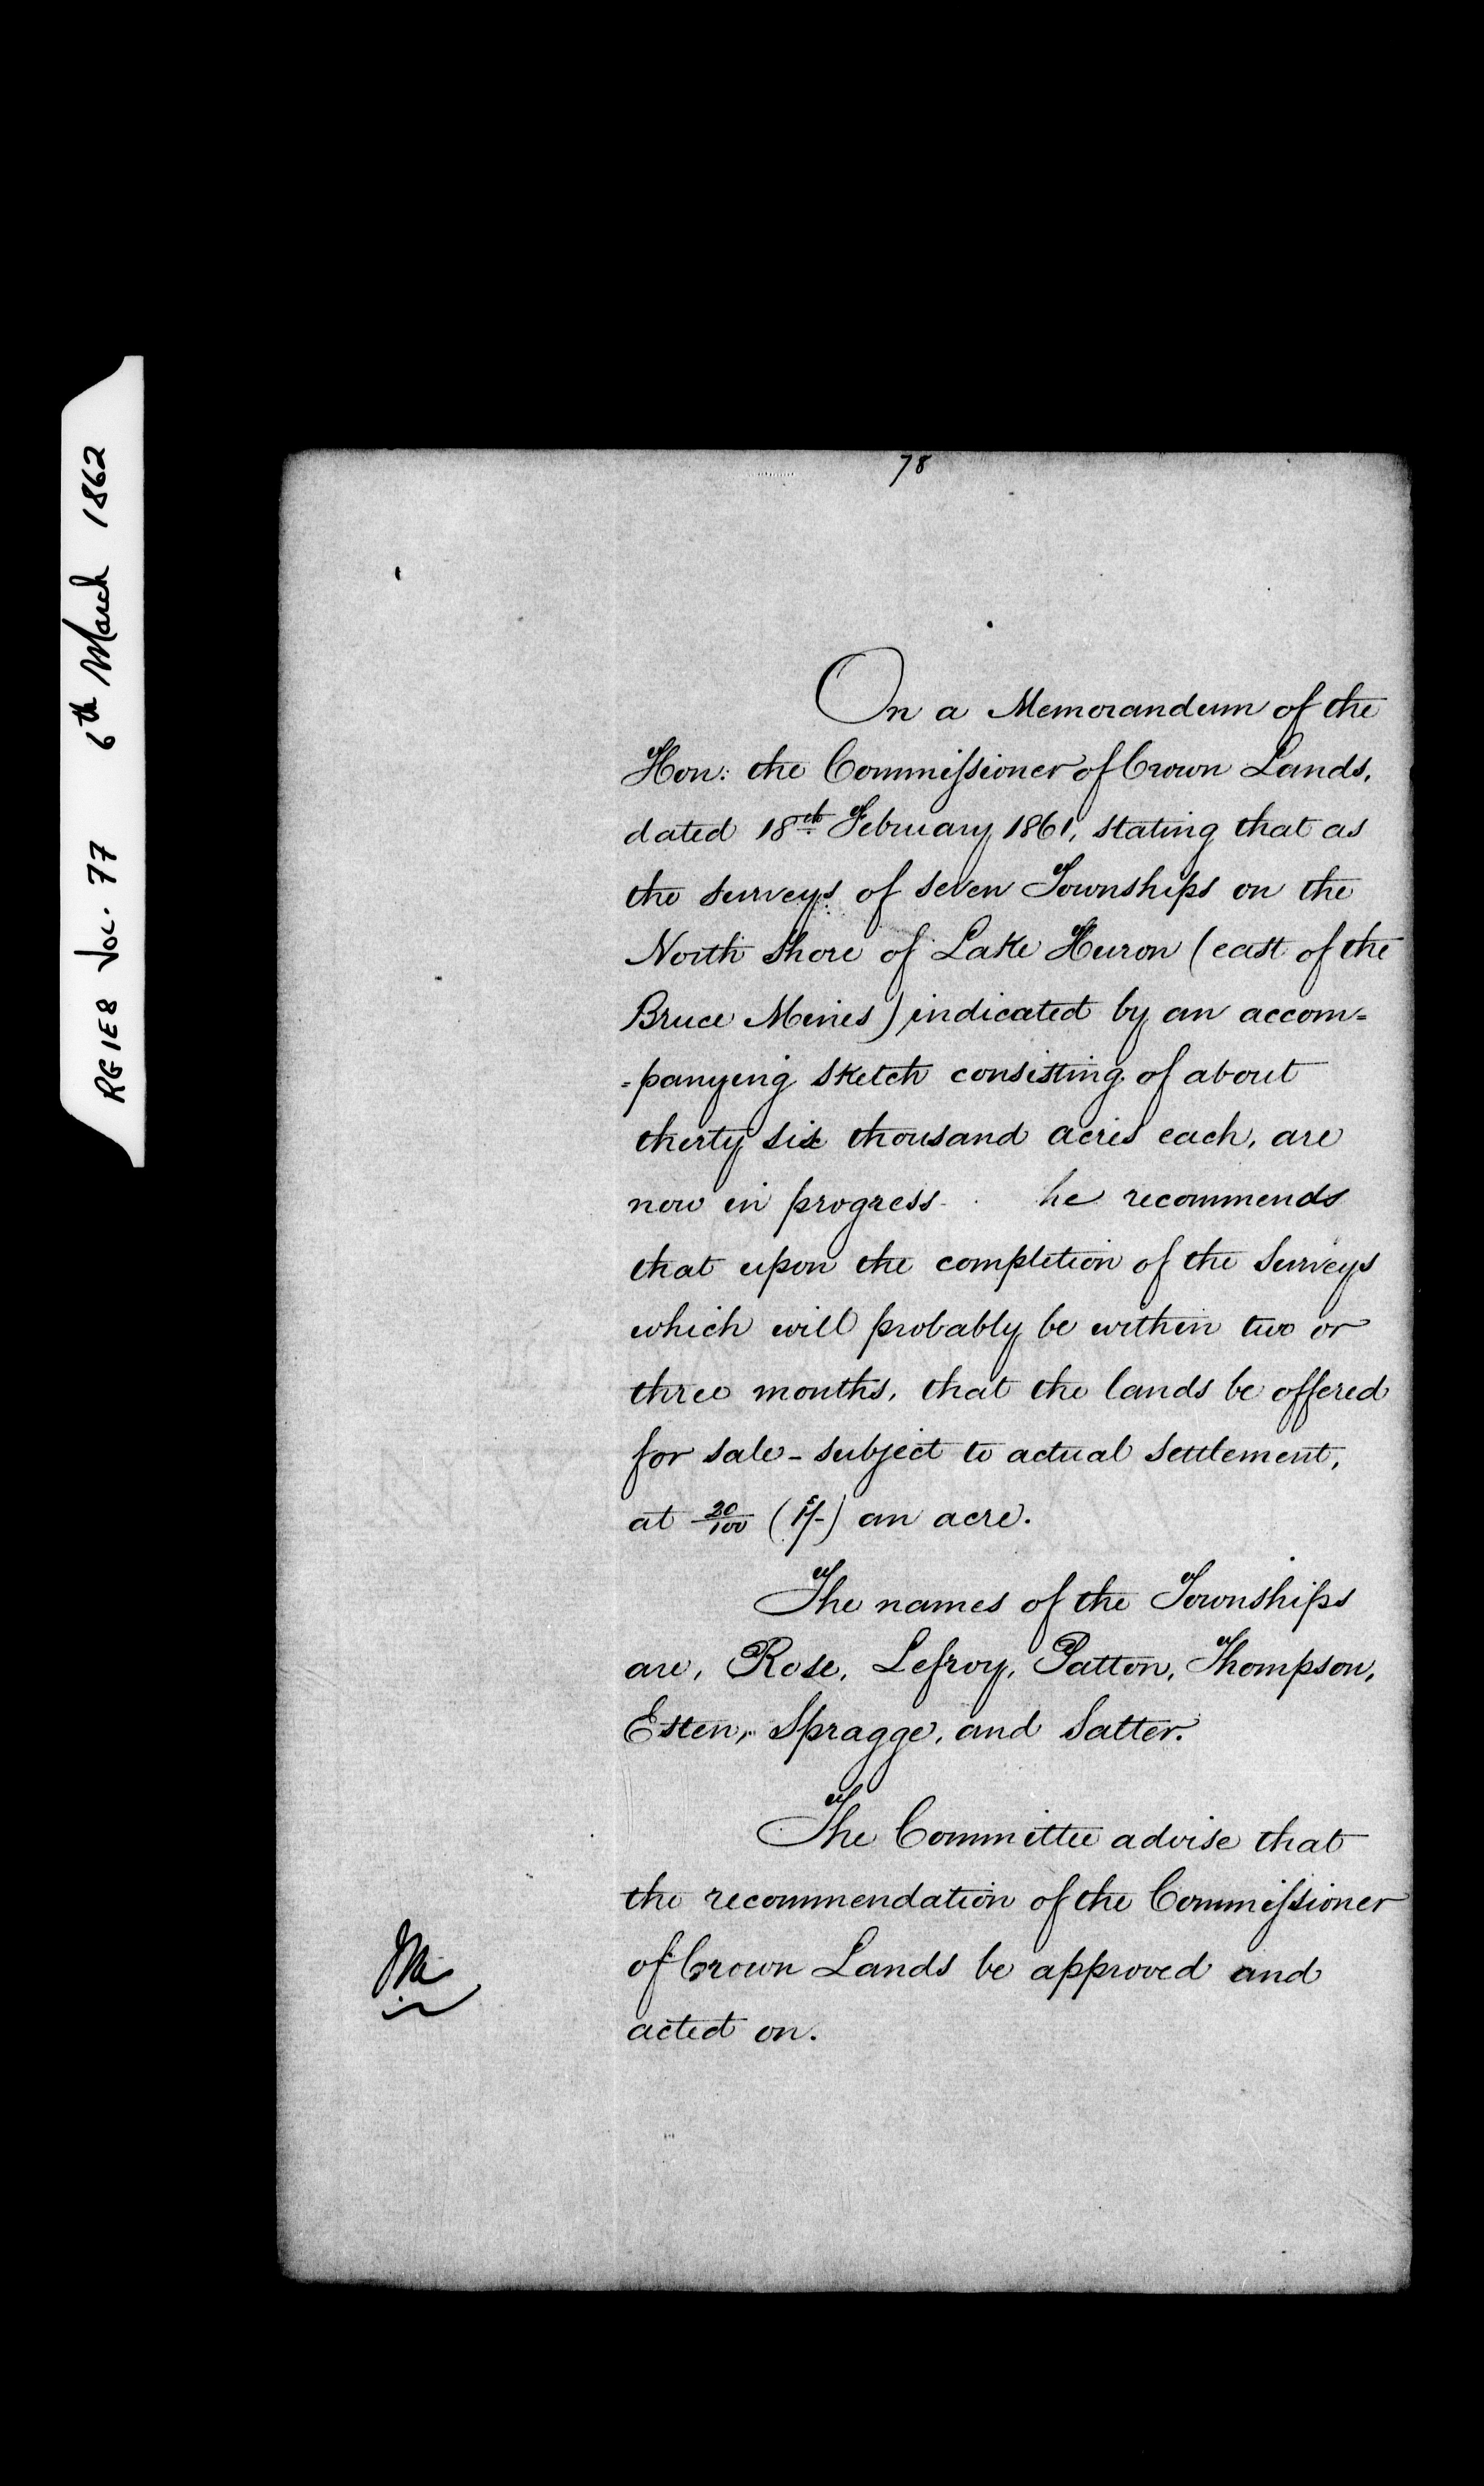 RG1E8 Vol. 77 6th March 1862
78
On a Memorandum of the
Hon: the Commissioner of Crown Lands,
dated 18th February 1861, stating that as
the surveys of seven Townships on the
North Shore of Lake Huron (east of the
Bruce Mines) indicated by an accom=
=panying sketch consisting of about
thirty six thousand acres each, are
now in progress. he recommends
that upon the completion of the Surveys
which will probably be within two or
three months, that the lands be offered
for sale - subject to actual settlement,
at 20/100 (1s/-) an acre.
The names of the Townships
are, Rose, Lefroy, Patton, Thompson,
Esten, Spragge, and Salter.
The Committee advise that
the recommendation of the Commissioner
of Crown Lands be approved and
acted on.